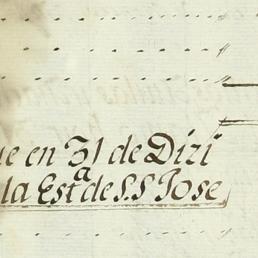 ue en 31 de Dizi
la Esta de S.S Jose